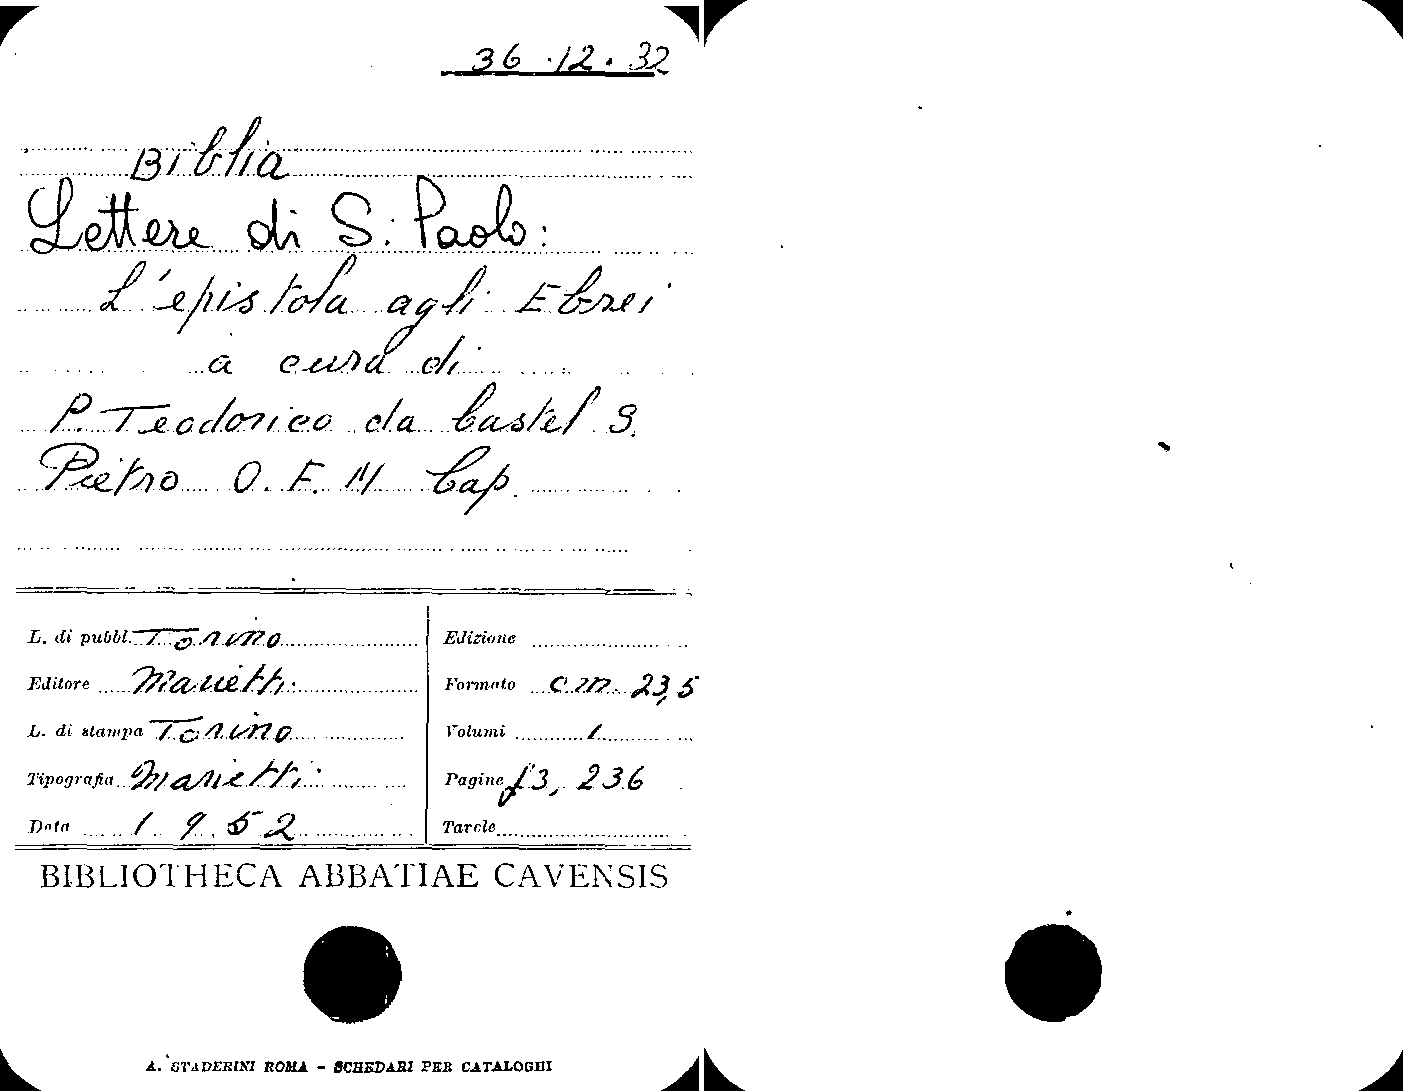 36.12.32
Biblia
Lettere di S. Paolo:
L'epistola agli Ebrei
a cura di
P. Teodorico da Castel S.
Pietro O. F. M Cap.
L. di pubbl. Torino
Editore Marietti
L. di stampa Torino
Tipografia Marietti
Data 1952
Edizione
Formato cm. 23,5
Volumi 1
Pagine 236
Tavole
BIBLIOTHECA ABBATIAE CAVENSIS
A. STADERINI ROMA - SCHEDARI PER CATALOGHI